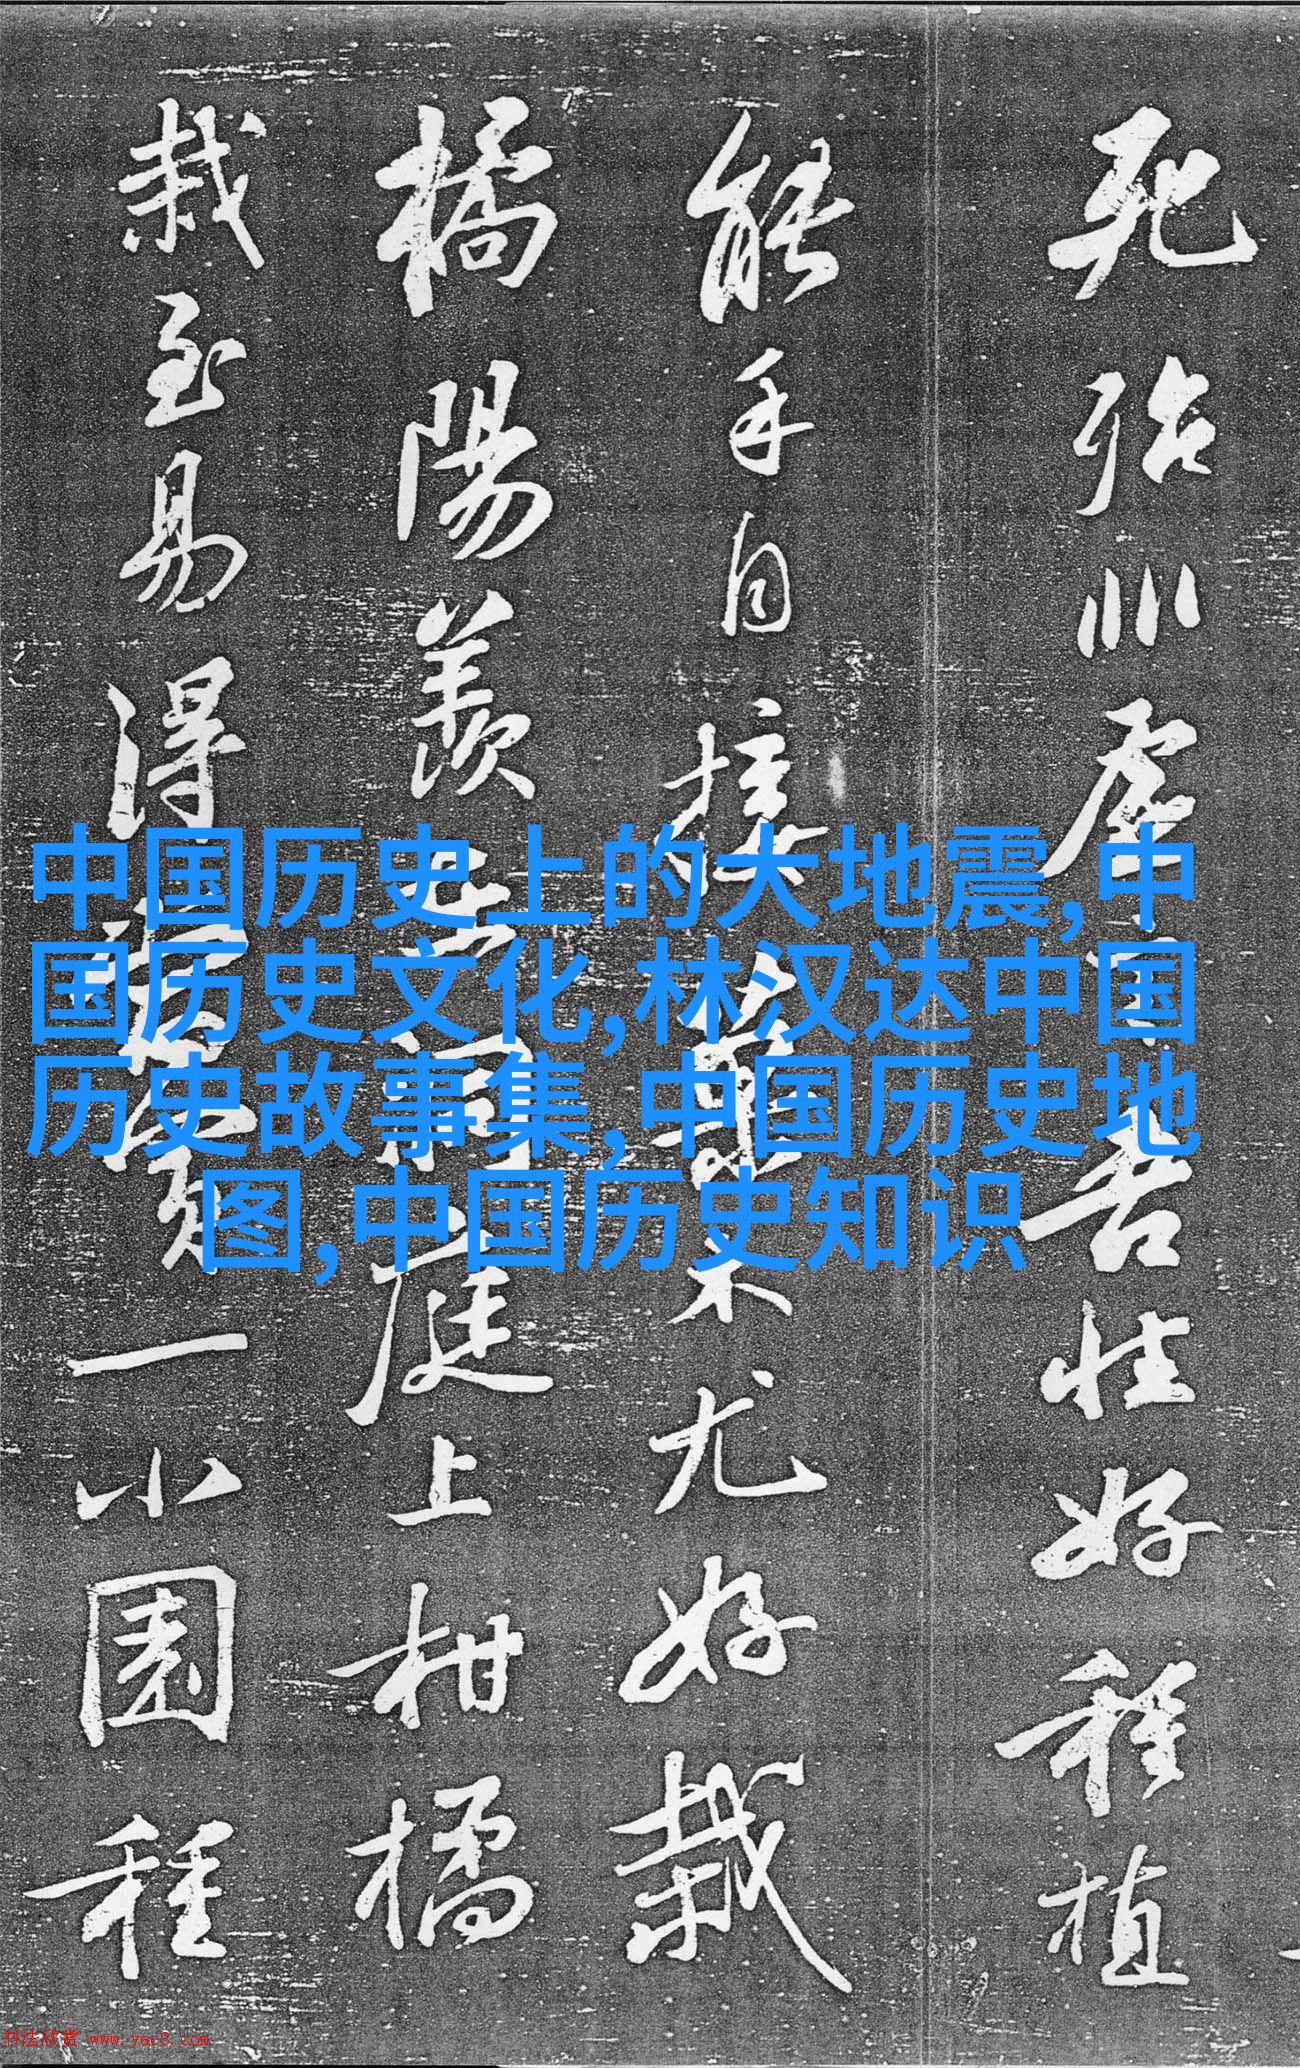 死殆非虛言吾性好種植
能手自接菓木尤好栽
橘陽羨在洞庭上柑橘
栽至易得當買一小園種
中国历史上的大地震,中
国历史文化,林汉达中国
历史故事集,中国历史地
图,中国历史知识
书法欣赏 www.yac8.com